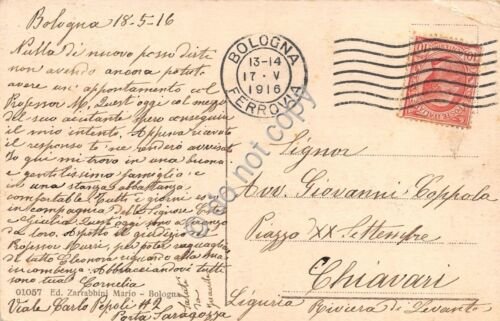 Bologna 18-5-16
Nulla di nuovo posso dirti
non avendo ancora potuto
avere un' appontamento col
Professor M. Quest'oggi col mezzo
del suo aiutante spero conseguire
il mio intento. Appena ricavato
il responso te ne renderò avvisato
Io qui mi trovo in una buona
e gentilissima famiglia e
in una stanza abbastanza
comfortable. Tutti i giorni sono
in compagnia delle Signore
Giulia. Quest'oggi sono a pranzo
da loro. Aspetto il giudizio
Professor Murri, per poter ragguagliar
di tutto Eleonora riguardo alla sua
incombenza. Abbracciandovi tutti
sono tua Cornelia
01057 Ed. Zarrabbini Mario - Bologna
Viale Carlo Pepoli No 2
Porta Saragozza
Saluti
BOLOGNA
13-14
17·V
1916
FERROVIA
Signor
Avv. Giovanni Coppola
Piazza XX Settembre
Chiavari
Liguria Riviera di Levante
do not copy